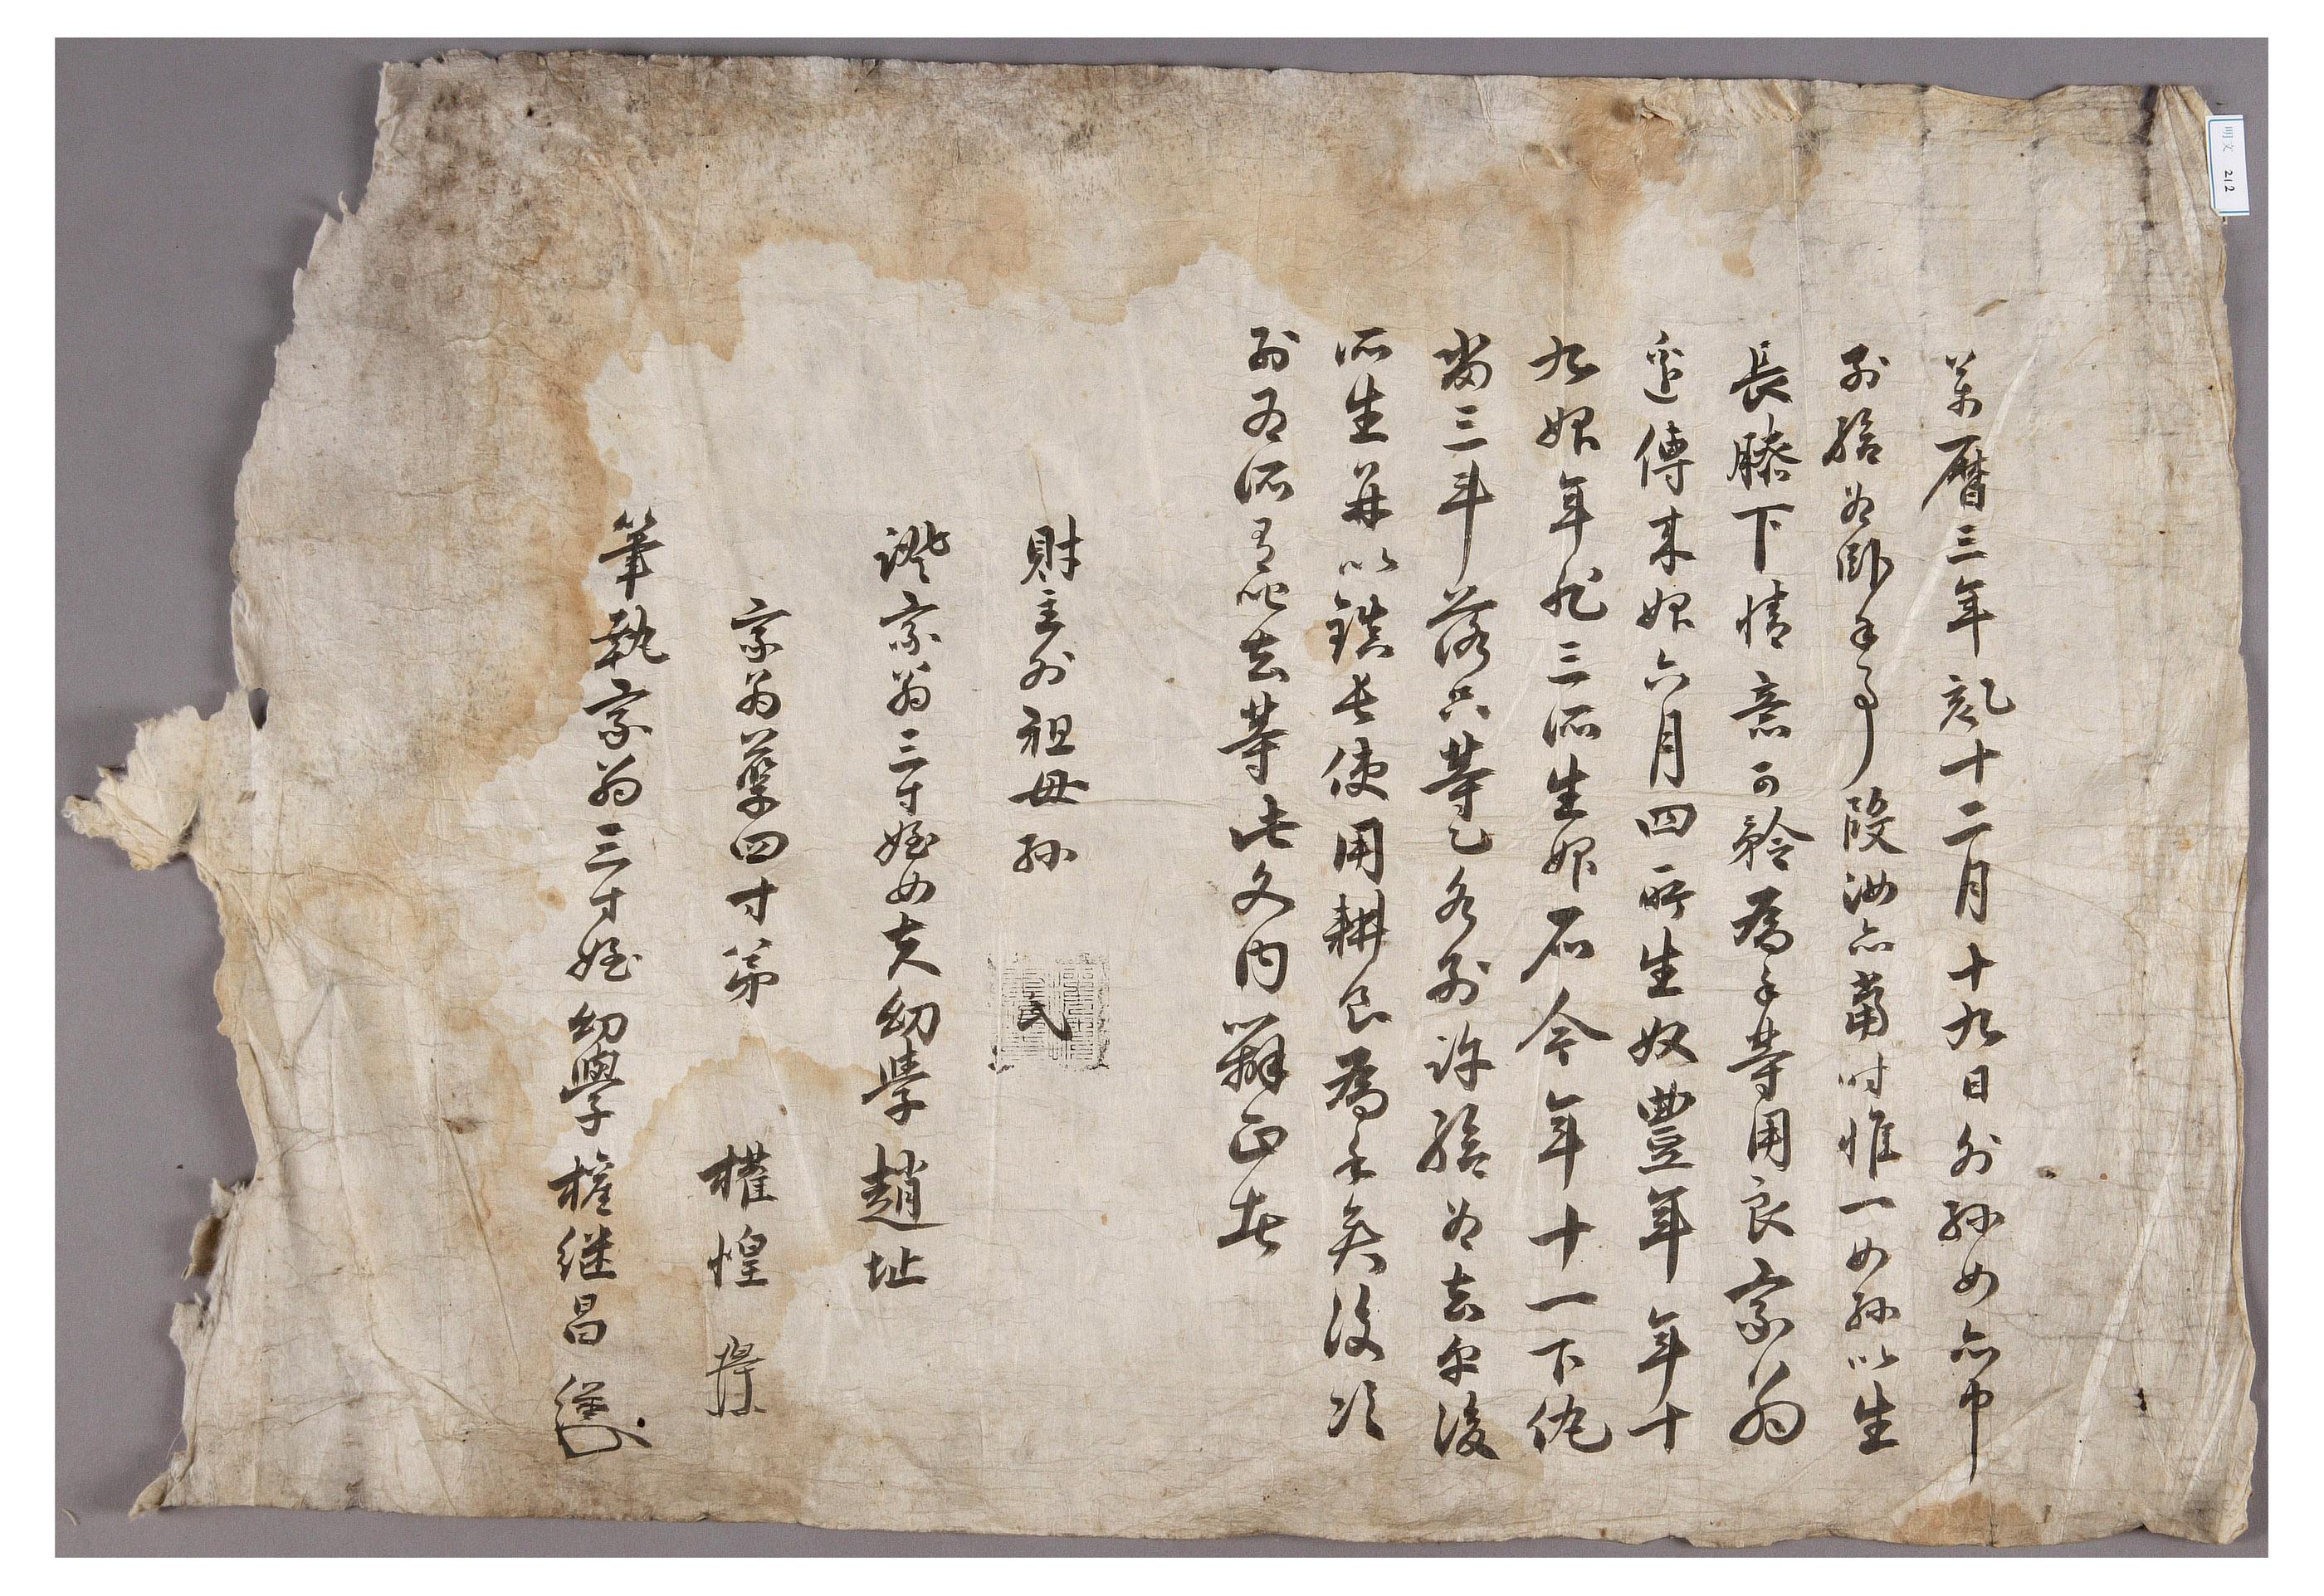 明文 212
萬曆三年乙亥十二月十九日外孫女亦中
別給爲臥乎事段汝亦當時惟一女孫以生
長膝下情意可矜爲乎等用良家翁
邊傳來婢六月四所生奴豊年年十
九婢年非三所生婢石今年十一下代
畓三斗落只等乙各別許給爲去乎後
所生幷以鎭長使用耕食爲乎矣後次
別爲所有叱去等此文內辨正者
財主外祖母孫 氏
證家翁三寸姪女夫幼學趙址
家翁孽四寸弟 權惶
筆執家翁三寸姪幼學權継昌